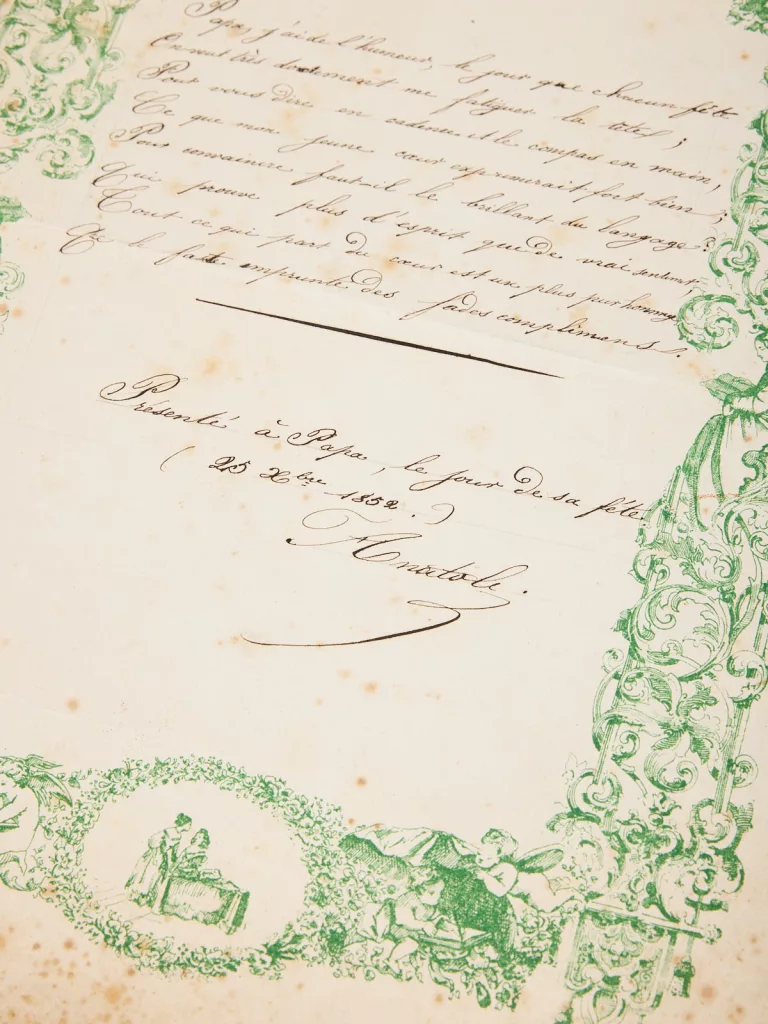 Papa, j'ai de l'humeur, le jour que chacun fête
On veut très doctement me fatiguer la tête;
Pour vous dire en cadence et le compas en main,
Ce que mon jeune cœur exprimerait fort bien;
Pour convaincre faut-il le brillant du langage?
Qui prouve plus d'esprit que de vrai sentiment;
Tout ce qui part du cœur est un plus pur hommage
Qe le faste emprunté des fades complimens.
Présenté à Papa, le jour de sa fête.
( 25 Xbre 1852. )
Anatole.